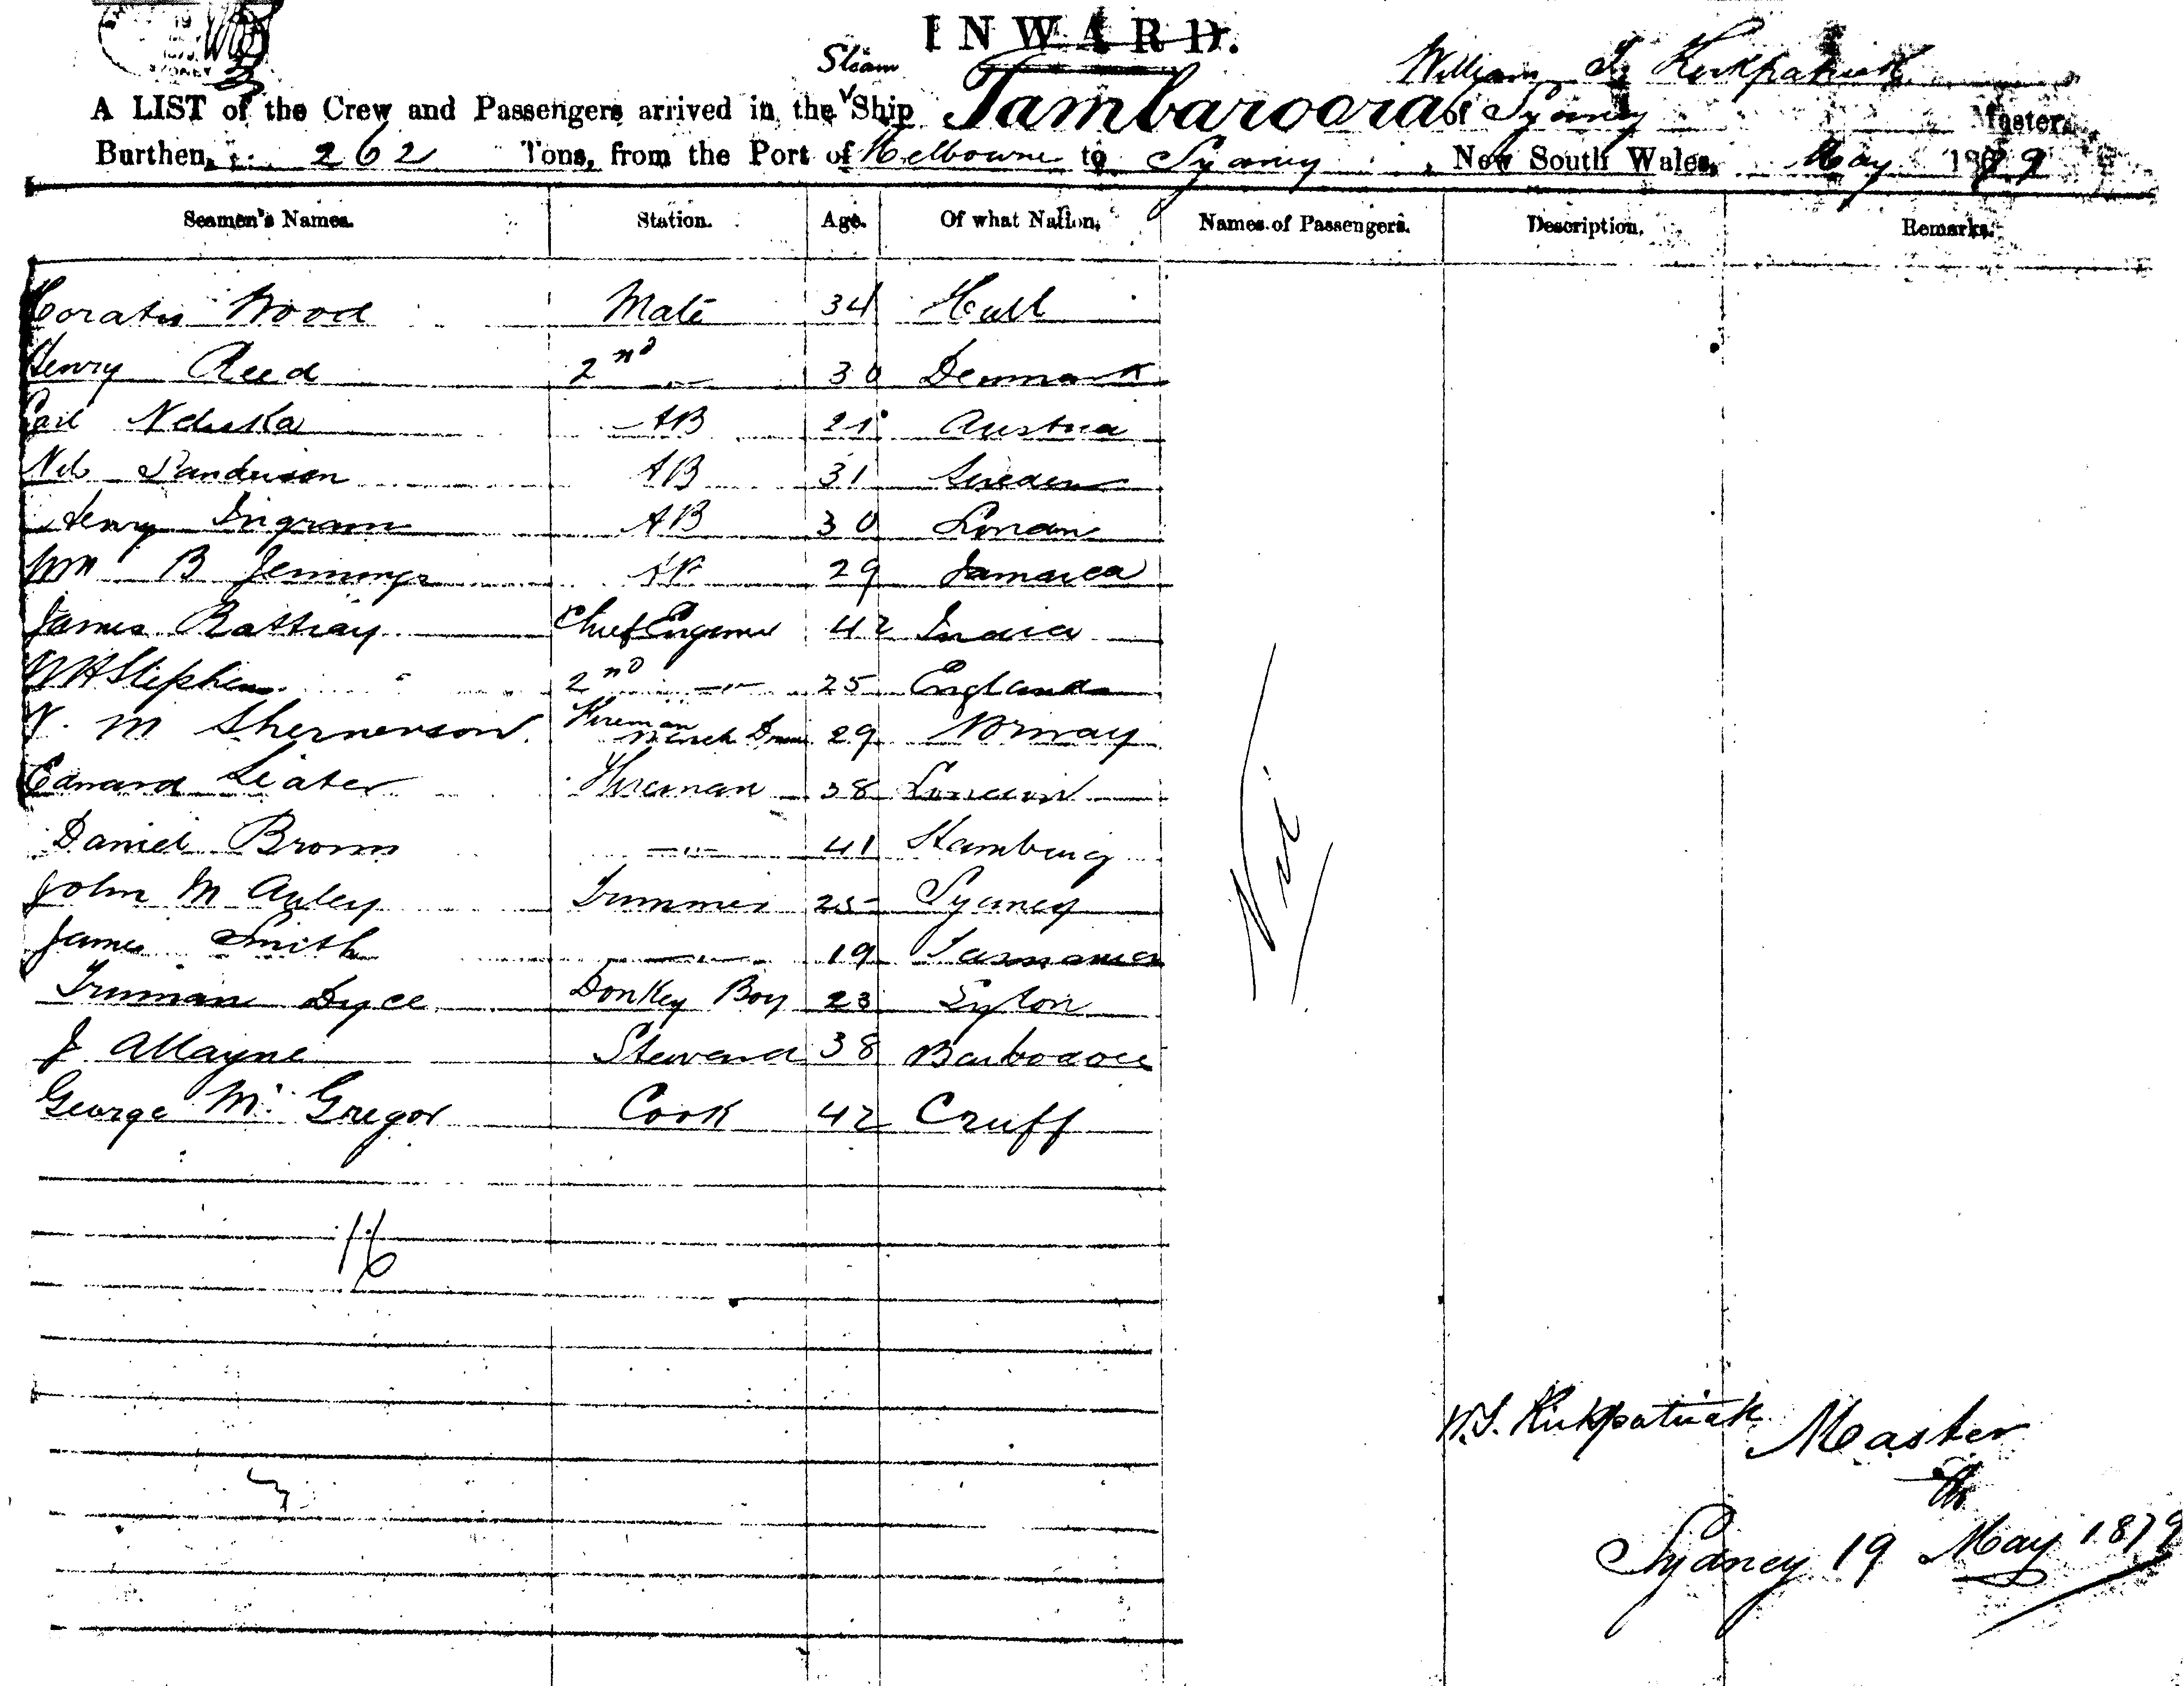 INWARD.
Steam
William T Kirkpatrick
A LIST of the Crew and Passengers arrived in the Ship Tambaroora of Sydney Master,
Burthen, 262 Tons, from the Port of Melbourne to Sydney, New South Wales, May 1879
Seamen's Names. Station. Age. Of what Nation. Names of Passengers. Description. Remarks.
Horatio Wood Mate 34 Hull
Henry Reed 2nd -"- 30 Denmark
Carl 21 Austria
AB
Nils Sanderson AB 31 Sweden
Henry Ingram AB 30 London
Wm B Jennings AB 29 Jamaica
James Rattray Chief Engineer 42 India
W H Stephen 2nd -"- 25 England
M Shernerson Fireman 29 Norway
Edward Fireman 38 London
Daniel Brown -"- 41 Hamburg
John M Auley Trimmer 25 Sydney
James Smith -"- 19 Tasmania
Truman Dyce Donkey Boy 23
J Allayne Steward 38 Barbadoes
George Mc Gregor Cook 42 Cruff
Nil
16
W.T. Kirkpatrick Master
Sydney 19th May 1879